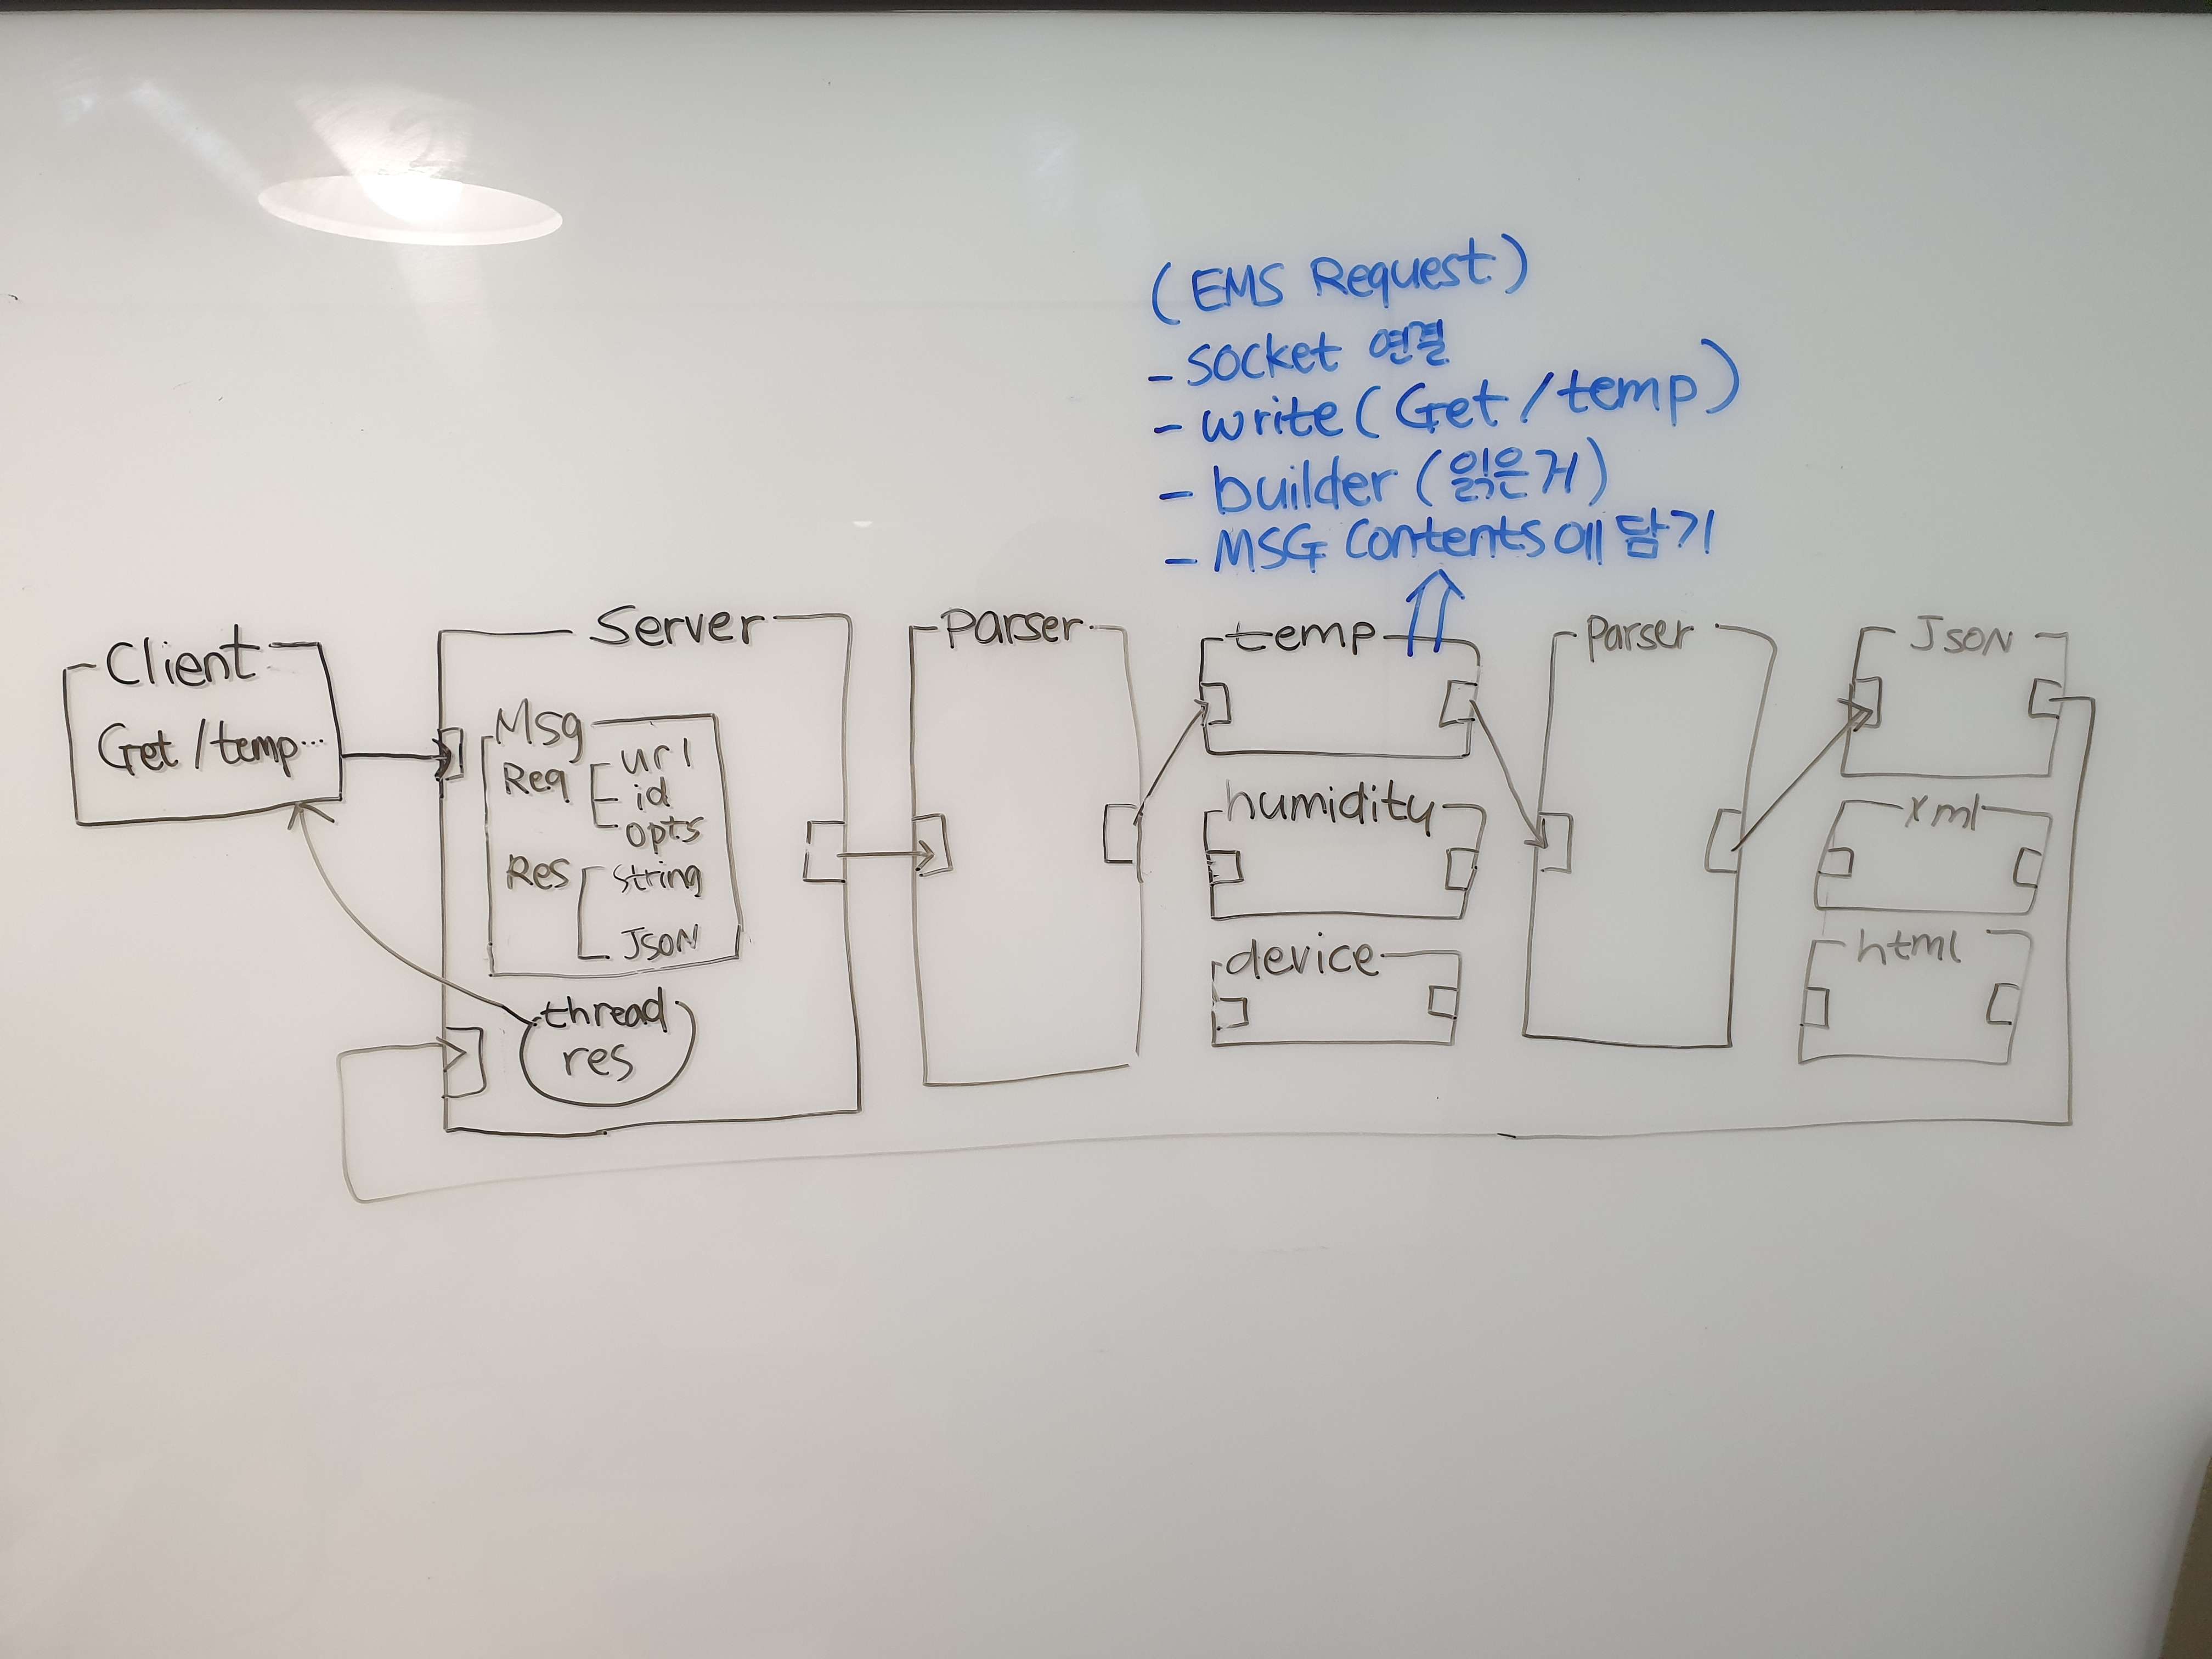 (EMS Request)
- socket 연결
- write(Get /temp)
- builder (읽은거)
- MSG Contents에 담기
Client
Get /temp...
Server
Msg
Req
url
id
opts
Res
string
JSON
thread
res
Parser
temp
humidity
device
Parser
JSON
xml
html